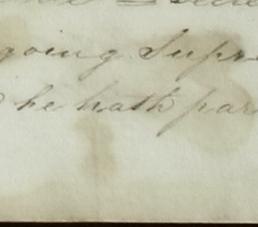 going Supr
he hath par